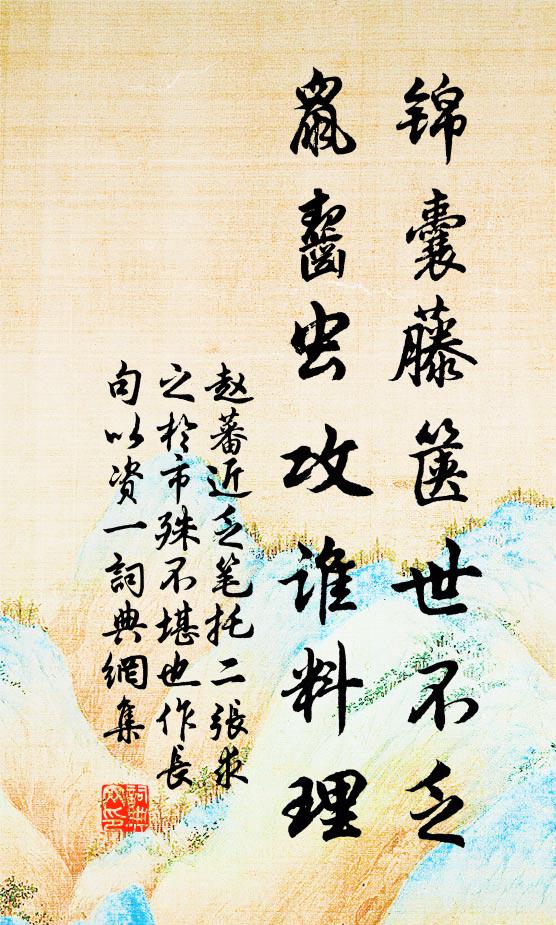 锦囊藤箧世不乏
鼠齧虫攻谁料理
赵蕃近乏笔托二張求
之於市殊不堪也作長
句以资一詞典網集